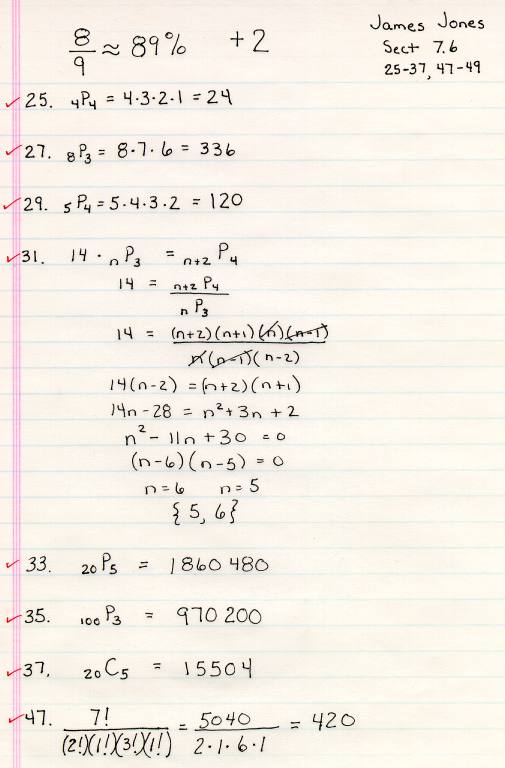 8/9 ≈ 89% +2
James Jones
Sect 7.6
25-37, 47-49
25. ₄P₄ = 4·3·2·1 = 24
27. ₈P₃ = 8·7·6 = 336
29. ₅P₄ = 5·4·3·2 = 120
31. 14 · ₙP₃ = ₙ₊₂P₄
14 = ₙ₊₂P₄ / ₙP₃
14 = (n+2)(n+1)(n)(n-1) / n(n-1)(n-2)
14(n-2) = (n+2)(n+1)
14n-28 = n²+3n+2
n² - 11n + 30 = 0
(n-6)(n-5) = 0
n=6 n=5
{5, 6}
33. ₂₀P₅ = 1860 480
35. ₁₀₀P₃ = 970 200
37. ₂₀C₅ = 15504
47. 7! / (2!)(1!)(3!)(1!) = 5040 / 2·1·6·1 = 420